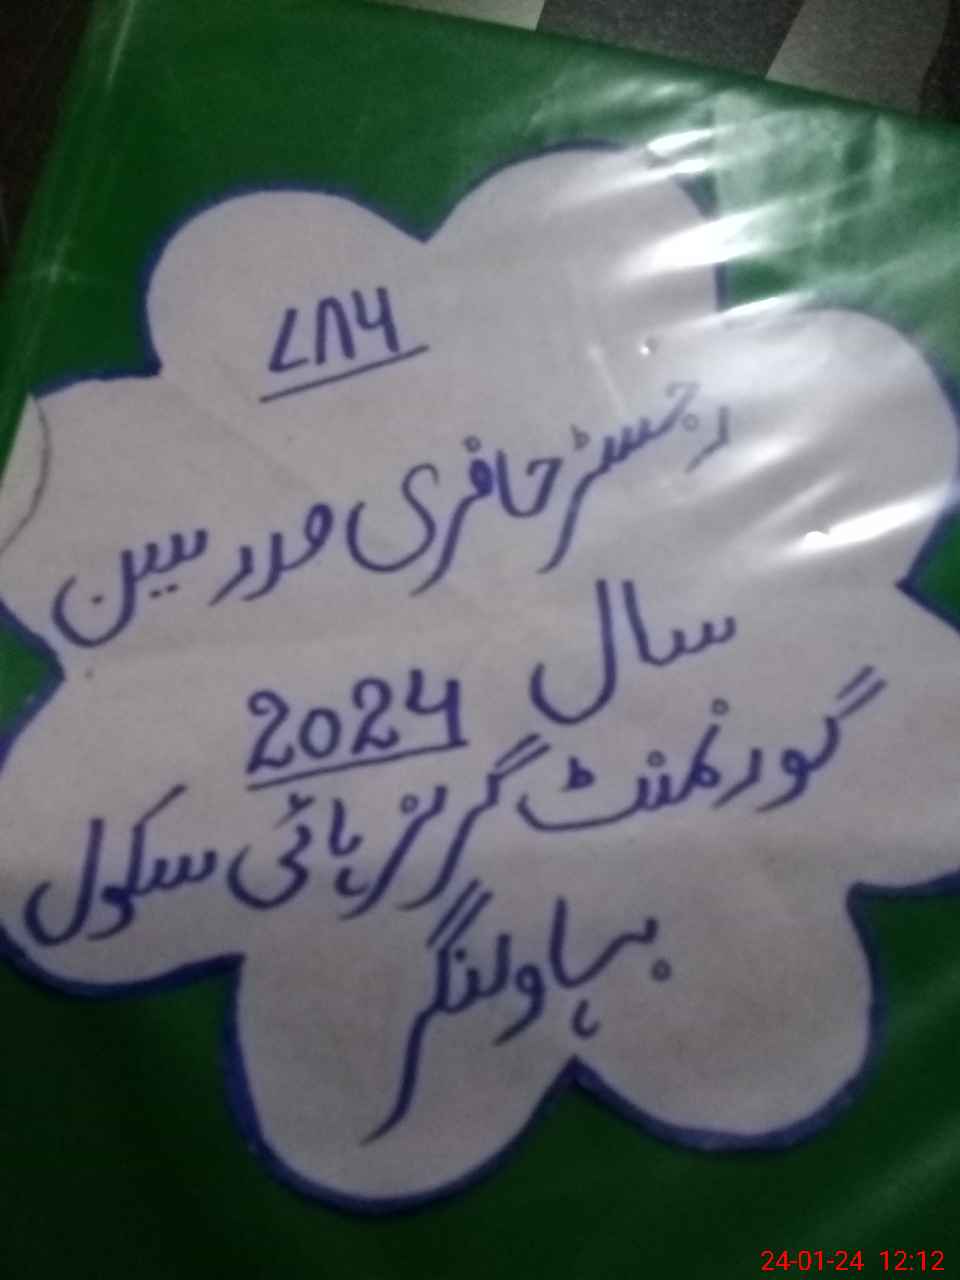 ۷۸۶
رجسٹر حاضری مدرسین
سال 2024
گورنمنٹ گرلز ہائی سکول
بہاولنگر
24-01-24 12:12